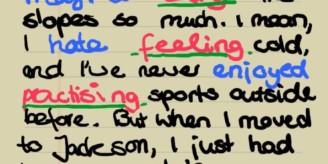 slopes so much. I mean,
I hate feeling cold,
and I've never enjoyed
practising sports outside
before. But when I moved
to Jackson, I just had